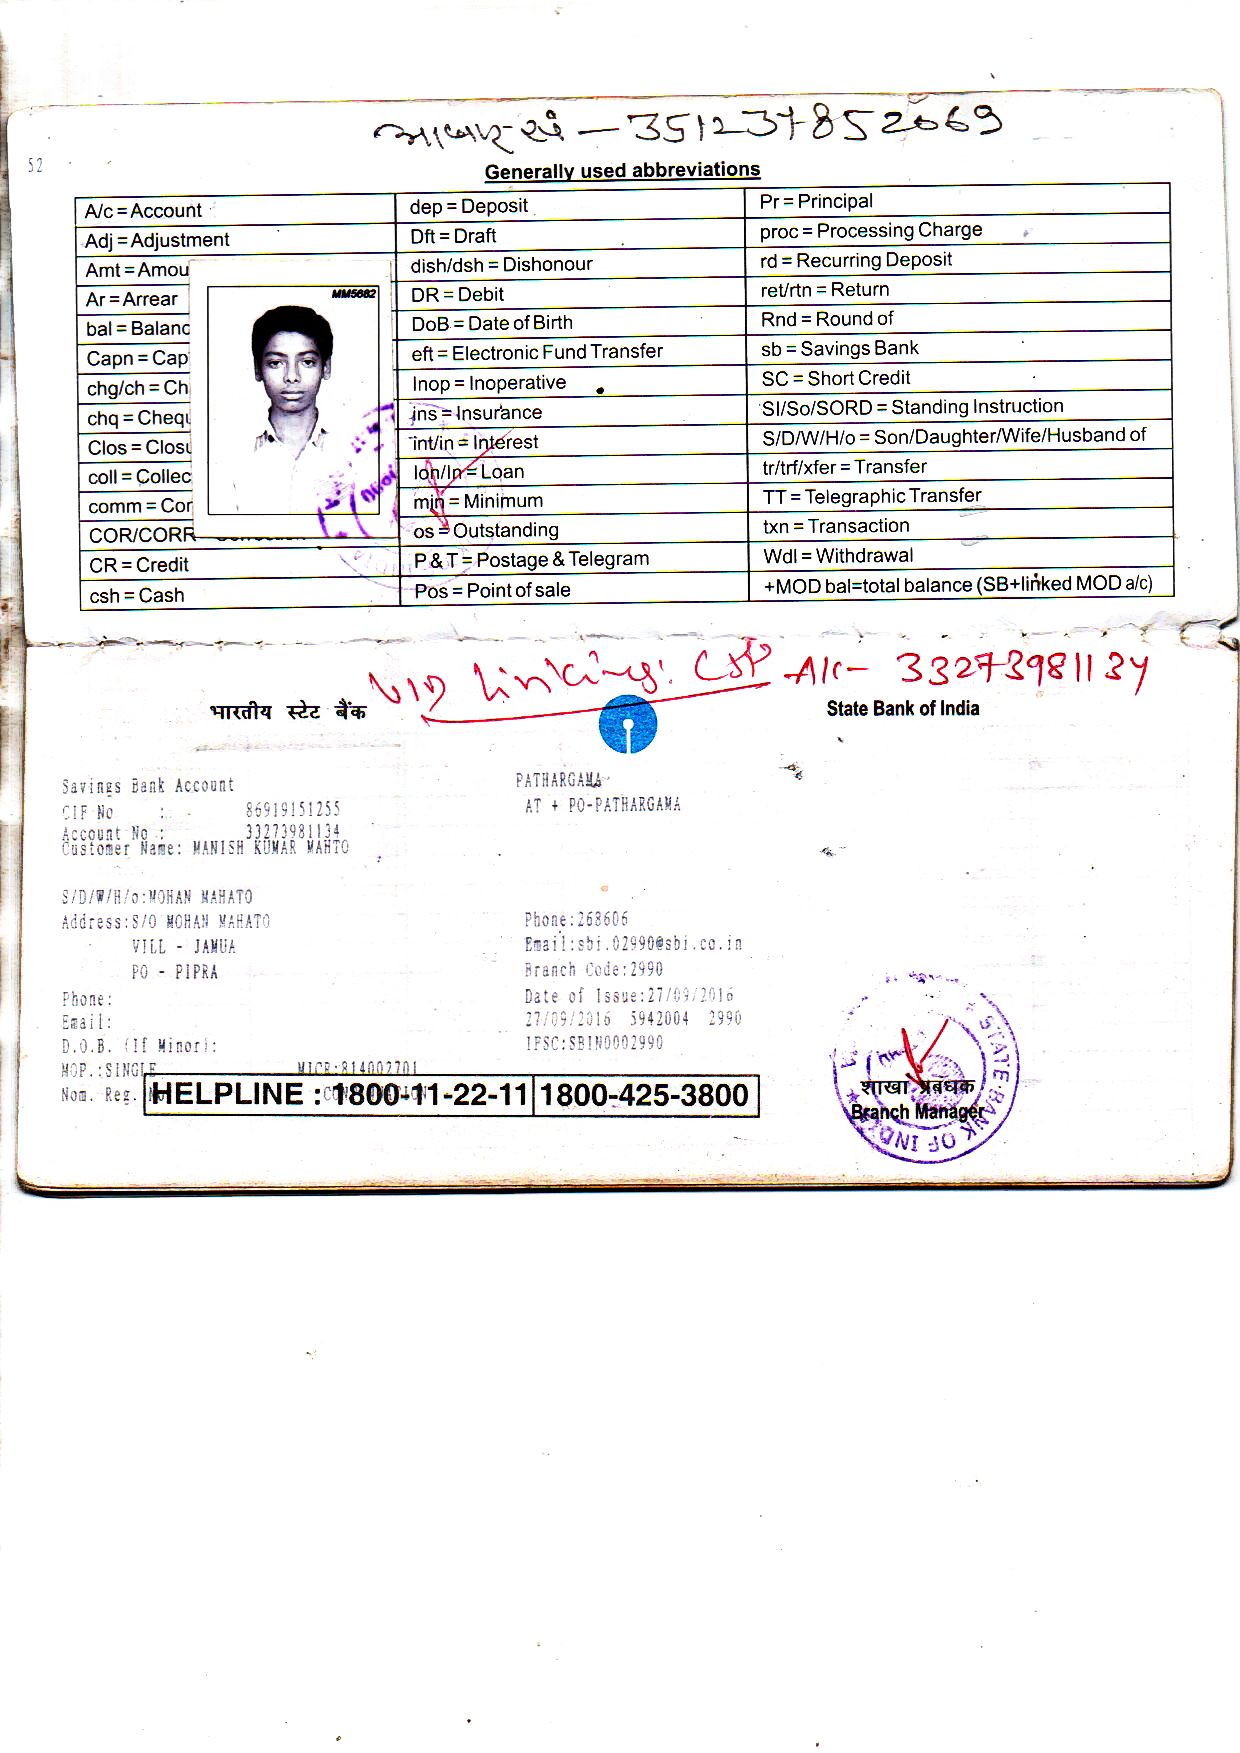 आधार सं – 351237852069
52
Generally used abbreviations
A/c = Account
Adj = Adjustment
Amt = Amou
Ar = Arrear
bal = Balanc
Capn = Cap
chg/ch = Ch
chq = Chequ
Clos = Closu
coll = Collec
comm = Cor
COR/CORR
CR = Credit
csh = Cash
dep = Deposit
Dft = Draft
dish/dsh = Dishonour
DR = Debit
DoB = Date of Birth
eft = Electronic Fund Transfer
Inop = Inoperative
ins = Insurance
int/in = Interest
lon/ln = Loan
min = Minimum
os = Outstanding
P & T = Postage & Telegram
Pos = Point of sale
Pr = Principal
proc = Processing Charge
rd = Recurring Deposit
ret/rtn = Return
Rnd = Round of
sb = Savings Bank
SC = Short Credit
SI/So/SORD = Standing Instruction
S/D/W/H/o = Son/Daughter/Wife/Husband of
tr/trf/xfer = Transfer
TT = Telegraphic Transfer
txn = Transaction
Wdl = Withdrawal
+MOD bal=total balance (SB+linked MOD a/c)
MM5682
UID Linking: CSP A/c – 33273981134
भारतीय स्टेट बैंक
State Bank of India
Savings Bank Account
CIF No : 86919151255
Account No : 33273981134
Customer Name: MANISH KUMAR MAHTO
S/D/W/H/o:MOHAN MAHATO
Address:S/O MOHAN MAHATO
VILL - JAMUA
PO - PIPRA
Phone:
Email:
D.O.B. (If Minor):
MOP.:SINGLE MICR:814002701
Nom. Reg.
HELPLINE : 1800-11-22-11 1800-425-3800
PATHARGAMA
AT + PO-PATHARGAMA
Phone:268606
Email:sbi.02990@sbi.co.in
Branch Code:2990
Date of Issue:27/09/2016
27/09/2016 5942004 2990
IFSC:SBIN0002990
शाखा प्रबंधक
Branch Manager
STATE BANK OF INDIA